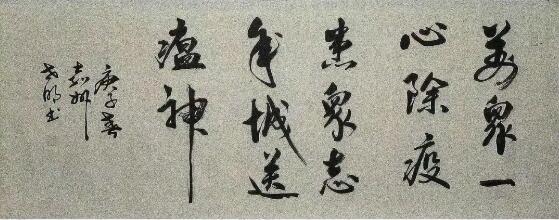 萬衆一
心除疫
患衆志
成城送
瘟神
庚子春
书